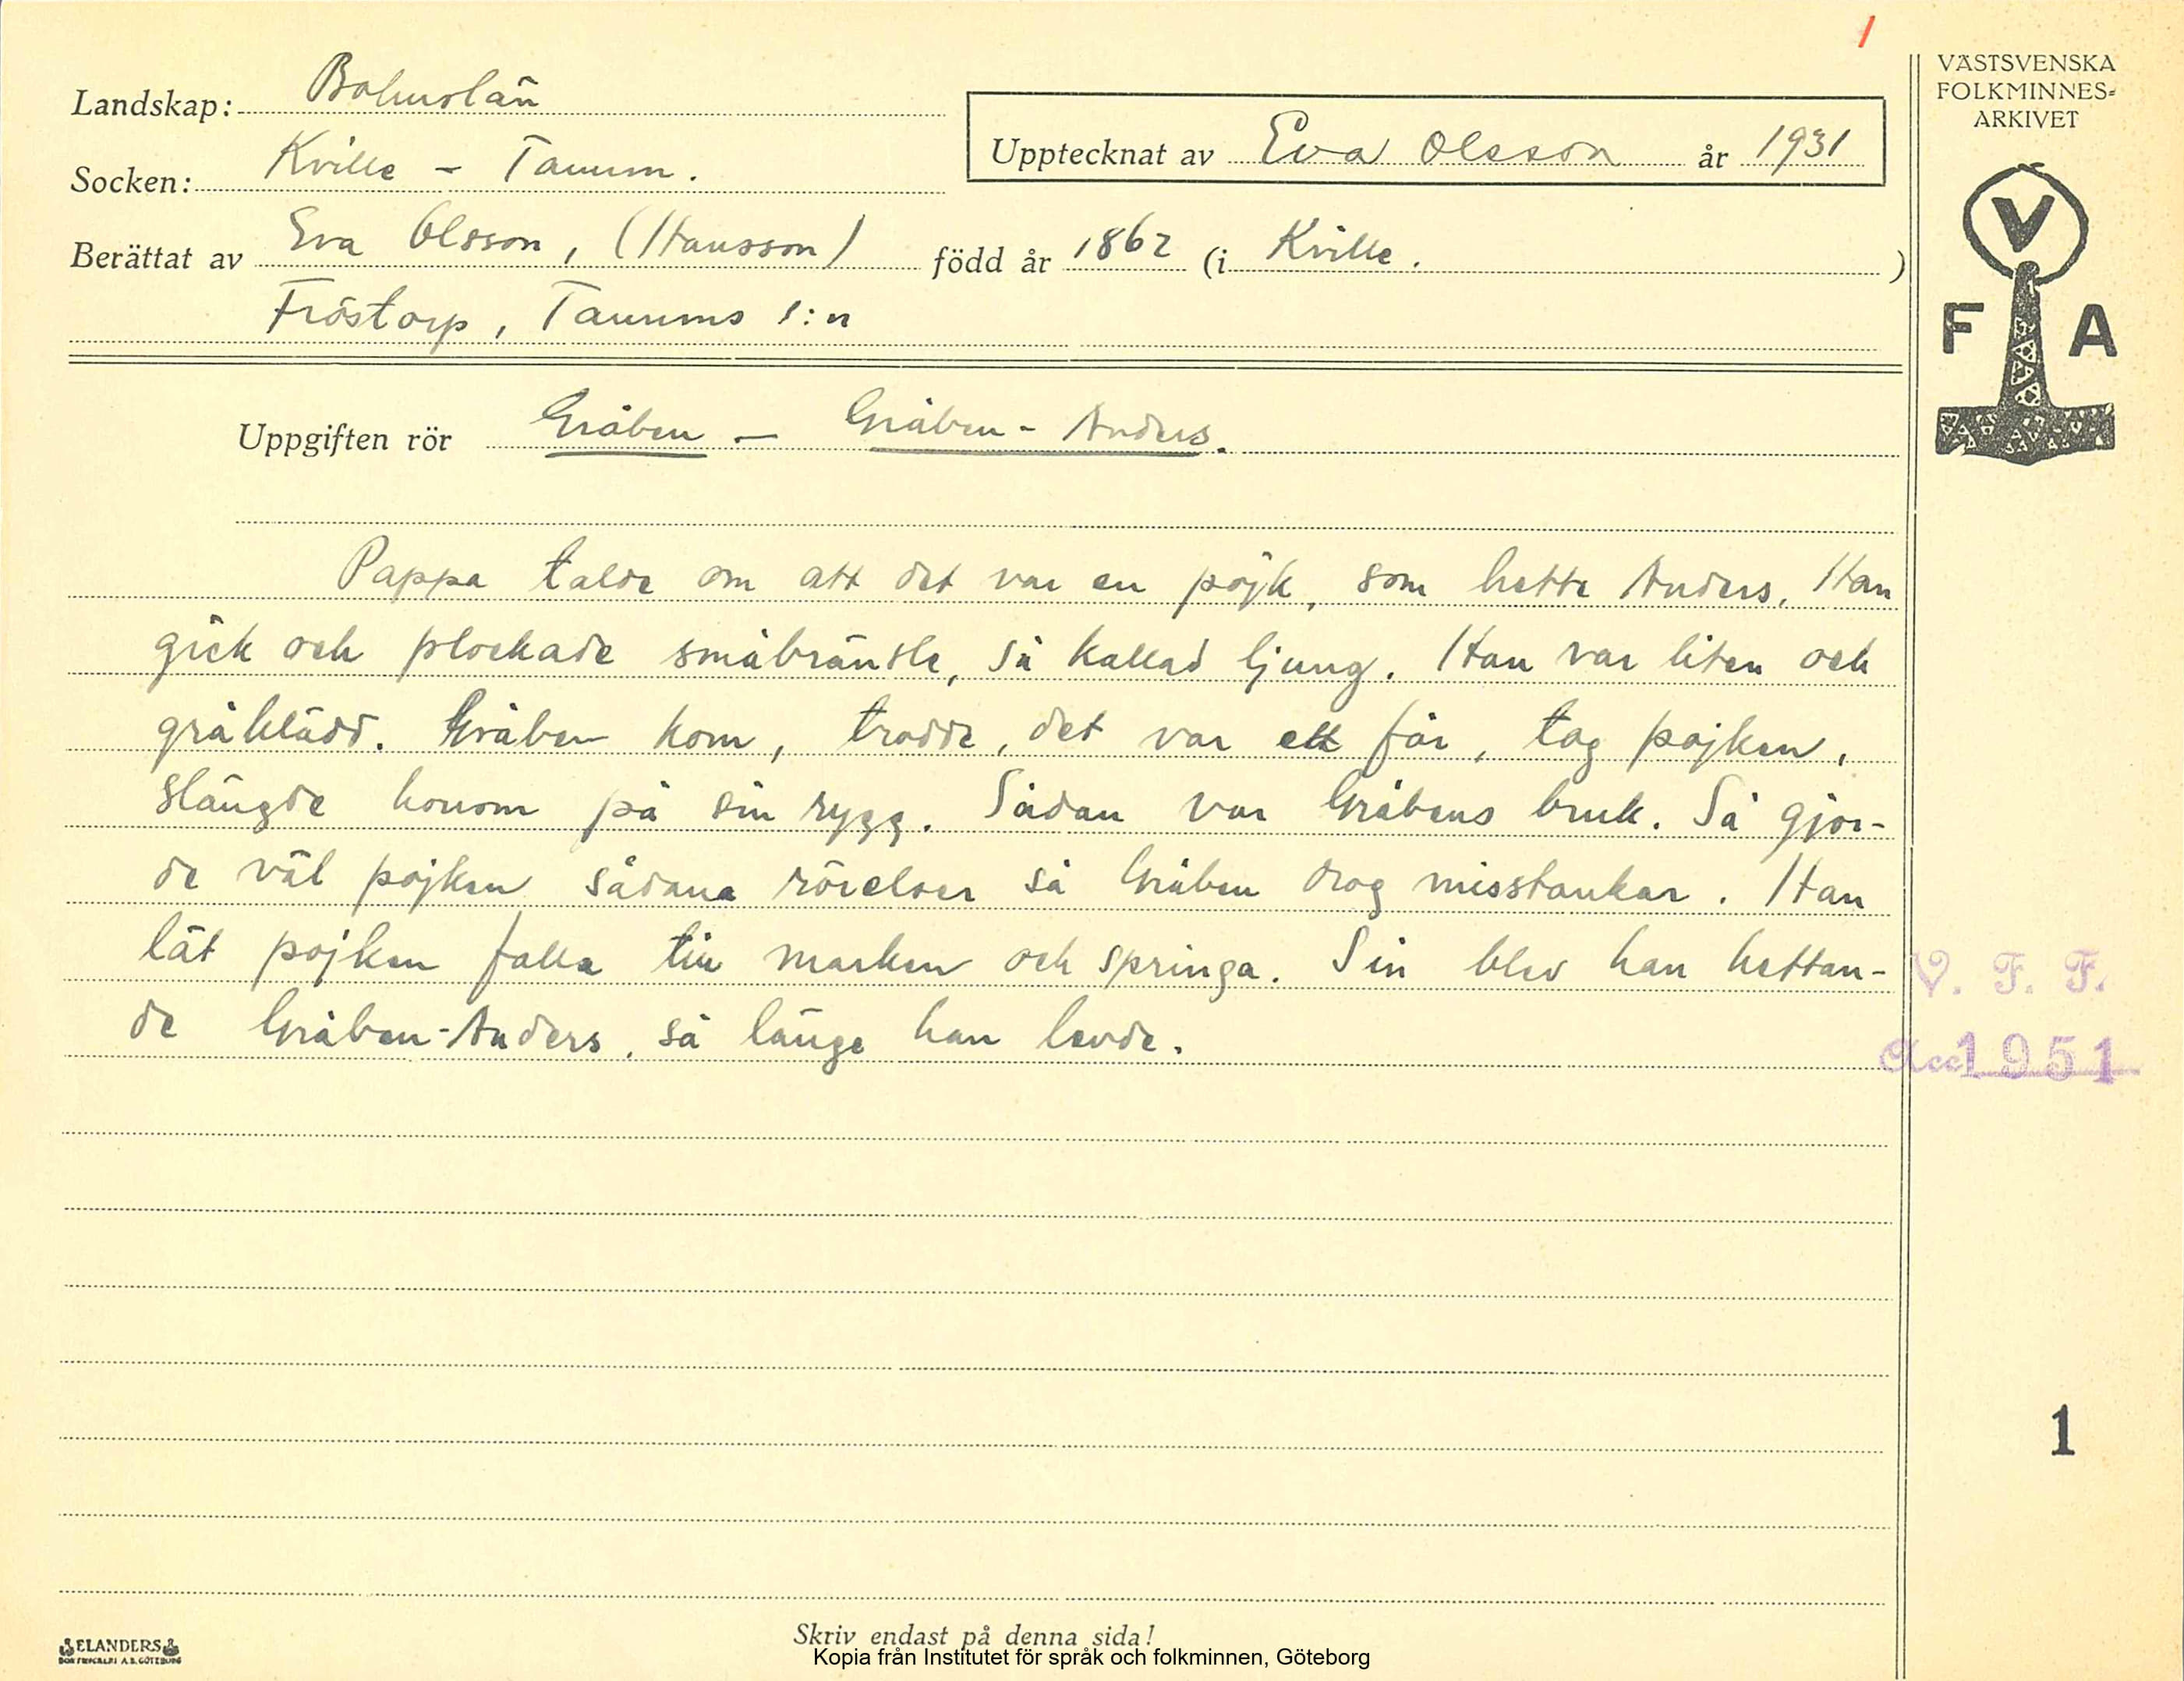 1
VÄSTSVENSKA
FOLKMINNES-
ARKIVET
Landskap: Bohuslän
Socken: Kville - Tanum.
Upptecknat av Eva Olsson år 1931
Berättat av Eva Olsson, (Hansson) född år 1862 (i Kville. )
Fröstorp, Tanums s:n
V
F A
Uppgiften rör Gråben - Gråben-Anders.
Pappa talde om att det var en pojk, som hette Anders. Han
gick och plockade småbränsle, så kallad ljung. Han var liten och
gråklädd. Gråben kom, trodde, det var ett får, tog pojken,
slängde honom på sin rygg. Sådan var Gråbens bruk. Så gjor-
de väl pojken sådana rörelser så Gråben drog misstankar. Han
lät pojken falla till marken och springa. Sin blev han hettan-
de Gråben-Anders, så länge han levde.
V. F. F.
Acc 1951
1
Skriv endast på denna sida!
ELANDERS
BOKTRYCKERI A.B. GÖTEBORG
Kopia från Institutet för språk och folkminnen, Göteborg